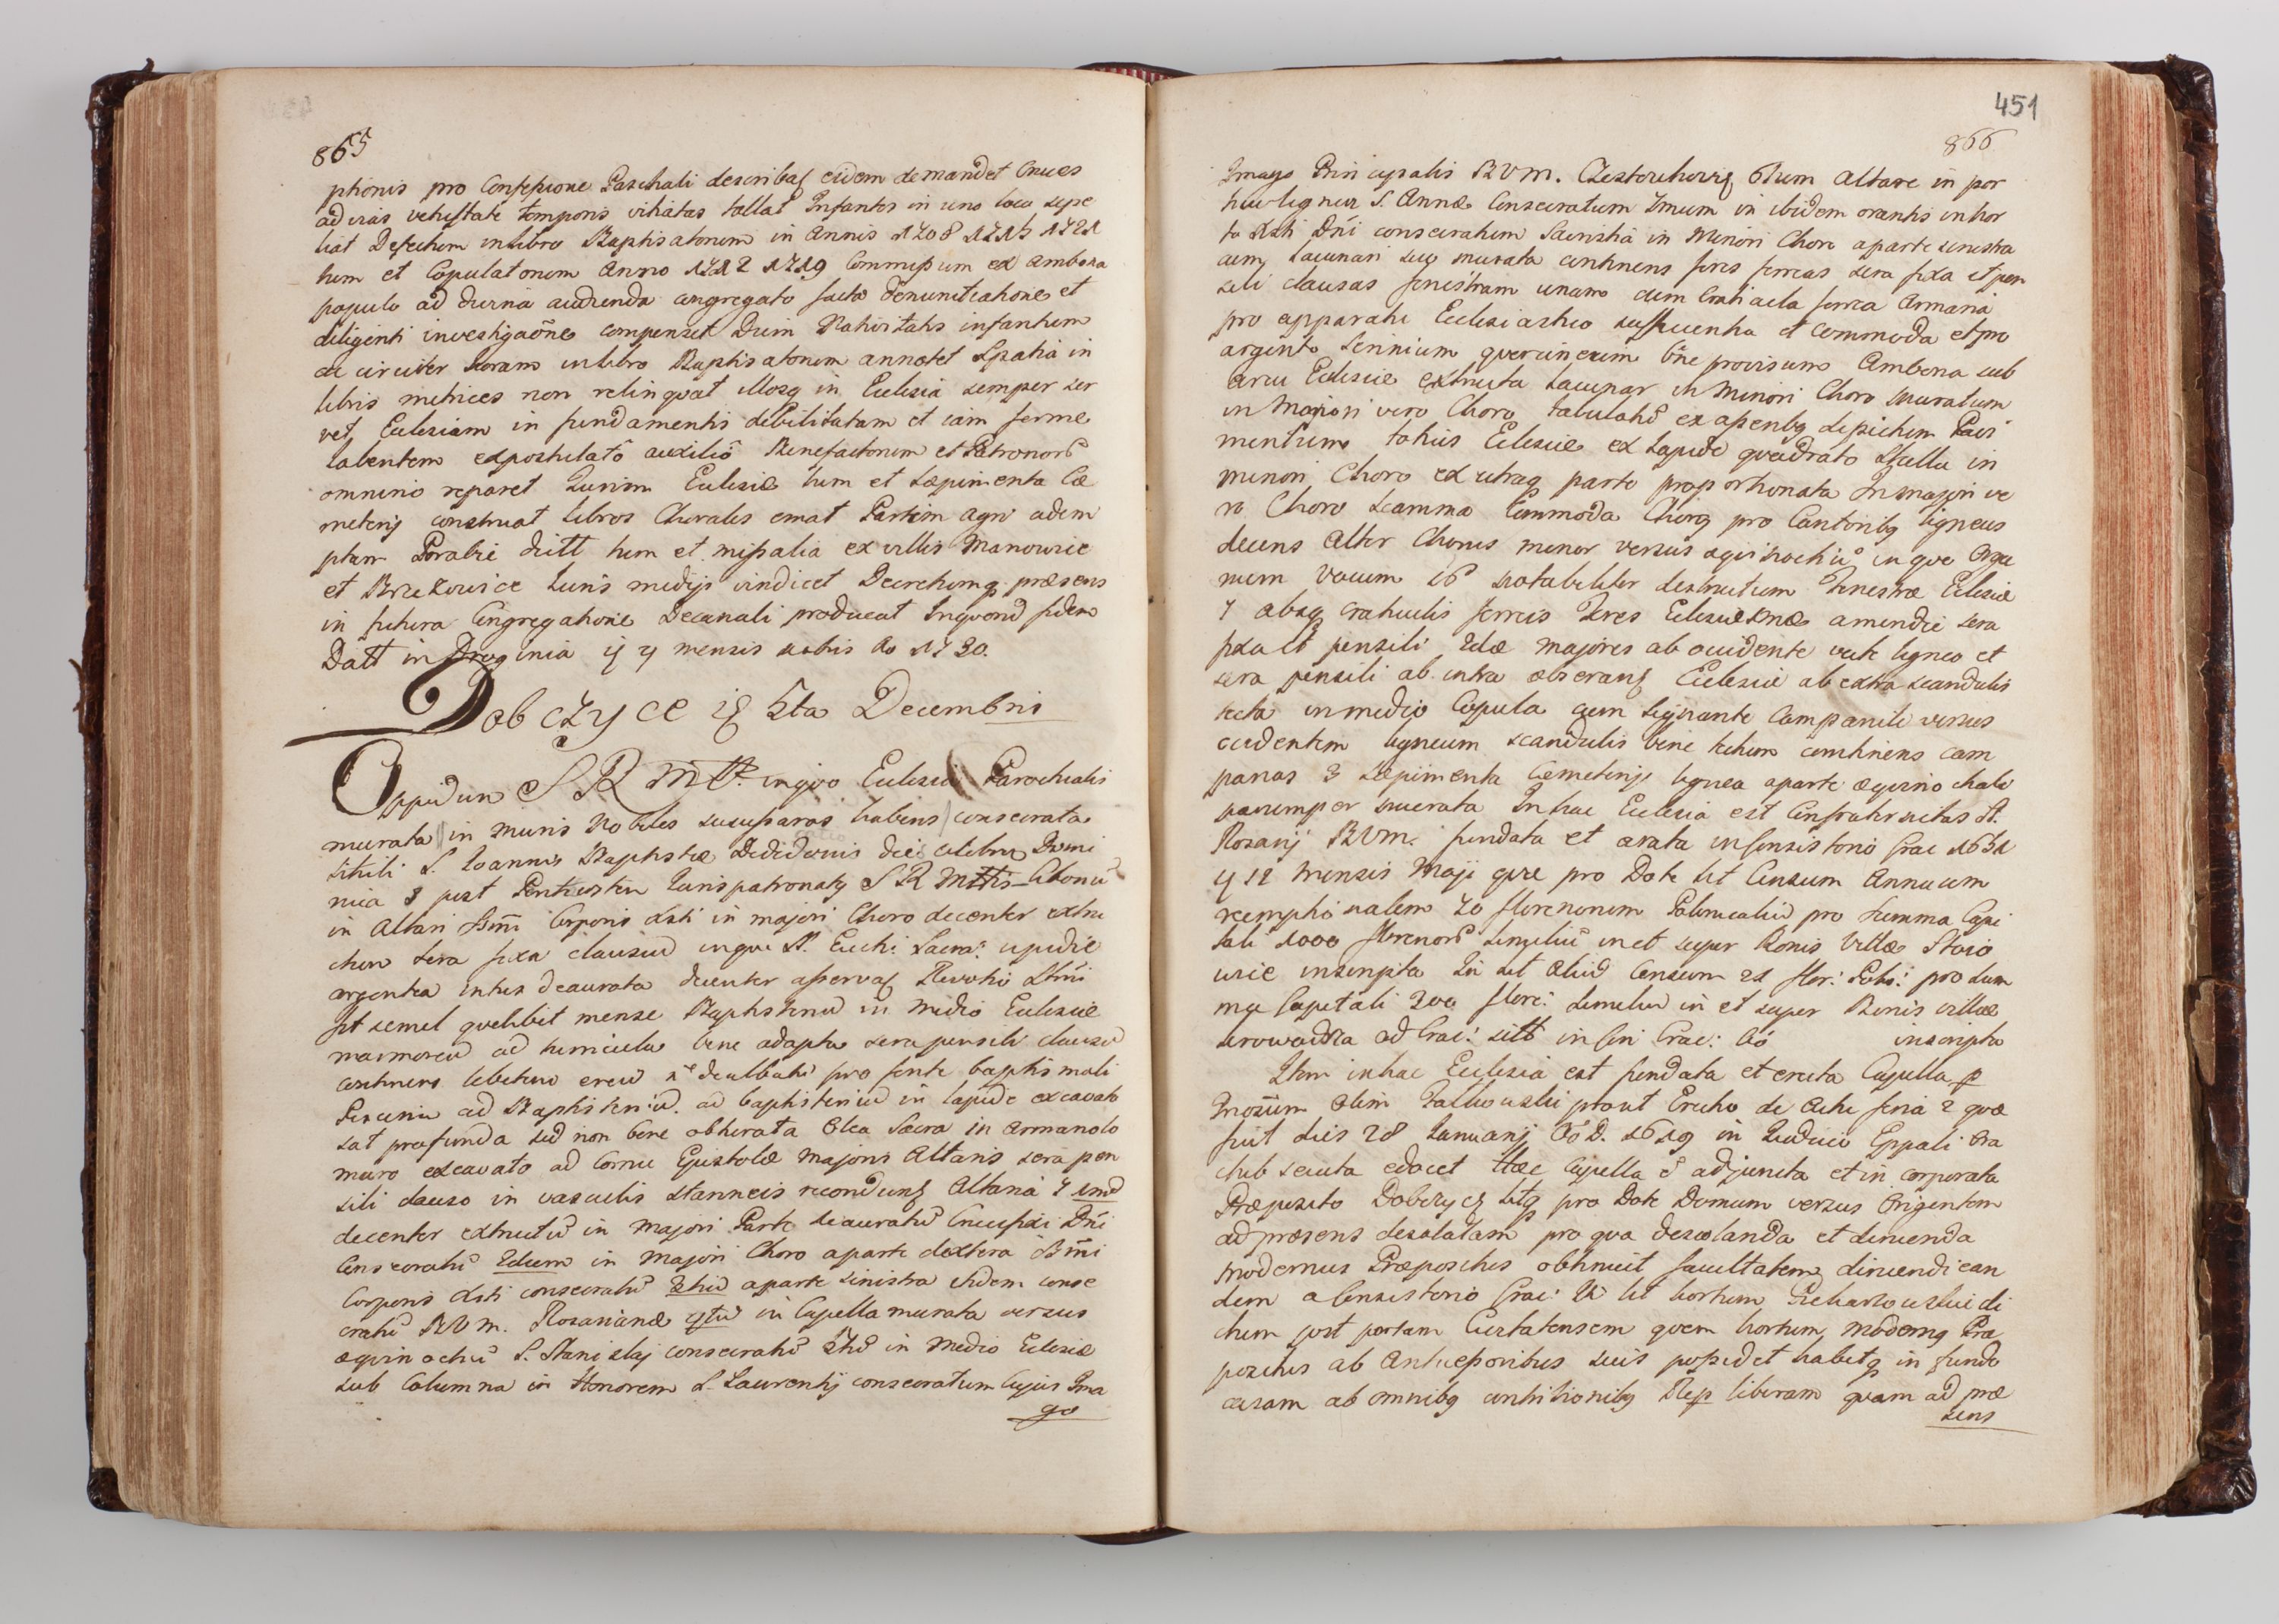 865
ptionis pro Confessione Paschali describat eidem demandet Cruces
ad vias vetustate temporis vitiatas tollat Infantes in uno loco sepe
liat Defectum in libro Baptisatorum in Annis 1708 1715 1721
tum et Copulatorum Anno 1712 1719 Commissum ex ambona
populo ad divina audienda congregato facta denuntiatione et
diligenti investigaōne compenset Diem Nativitatis infantium
ac circiter horam in libro Baptisatorum annotet Spatia in
libris metrices non relinquat illosq in Eclesia semper ser
vet Eclesiam in fundamentis debilitatam et iam ferme
labentem expostulato auxilio Benefactorum et Patronorū
omnino reparet Turrim Eclesiæ tum et sæpimenta Cæ
meterij construat libros Chorales emat Partem agri adem
ptam Porabie dictt tum et missalia ex villis Manowice
et Brzezowice Iuris medijs vindicet Decretumq præsens
in futura Congregatione Decanali producat Inquorū fidem
Datt in Droginia ij 4 mensis xobris Ao 1730.
Dobczyce ij 5ta Decembris
Oppidum S R Mtt. in quo Eclesia Parochialis
murata in muris Nobiles sucusparas habens consecrata
tituli S. Ioannis Baptistæ Dedi diei celebri Domi
nica 8 post Pentecosten Iuris patronatq S R Mttis Ciboriū
in Altari Ssmi Corporis Xsti in majori Choro decenter extru
ctum sera fixa clausum in quo St. Euchi: Sacra: in pixide
argentea intus deaurata decenter asservat Renovatio Stmi
fit semel quolibet mense Baptisteriū in medio Eclesiæ
marmoreū ad bene adapta sera pensili clausū
continens lebetem ereū dealbatū pro fonte baptismali
Piscina ad Baptisteriū. ad baptisteriū in lapide excavato
sat profunda sed non bene obturata Olea Sacra in armariolo
muro excavato ad Cornu Epistolæ majoris Altaris sera pen
sili clauso in vasculis stanneis recondunt Altaria 7 1mū
decenter extructū in majori Parte deauratū Crucifixi Dni
Consecratū 2dum in majori Choro a parte dextera Ssmi
Corporis Xsti consecratū 3tiū a parte sinistra itidem conse
cratū BVM. Rosarianæ 4tū in Capella murata versus
æquinoctiū S. Stanislaj consecratū 5tū in Medio Eclesiæ
sub Columna in Honorem S. Laurentij consecratum Cujus Ima
go
451
866
Imago Principalis BVM. Czestochovie 6tum altare in por
ticu lignea S. Annæ Consecratum 7mum in ibidem orantis in hor
to Xsti Dni consecratum Sacristia in Minori Choro a parte sinistra
cum lacunari suo murata continens fores ferreas sera fixa et pen
sili clausas fenestram unam cum Craticula ferrea Armaria
pro apparatu Eclesiastico sufficientia et commoda et pro
argento Scrinium quercineum bñe provisum Ambona sub
arcu Eclesiæ extructa Lacunar in Minori Choro muratum
in Majori vero Choro tabulatū ex asseribq depictum Pavi
mentum totius Eclesiæ ex Lapide quadrato Stalla in
minori Choro ex utraq parte proportionata In majori ve
ro Choro Scamna Commoda Chorq pro Cantoribq ligneus
decens Alter Chorus minor versus aquinoctiū in quo Orga
num Vocum 16 notabiliter destructum Fenestræ Eclesiæ
7 absq craticulis ferreis Fores Eclesiæ 1mæ a meridie sera
fixa et pensili 2dæ majores ab occidente vecte ligneo et
sera pensili ab intra obserant Eclesiæ ab extra scandulis
tecta in medio Copula cum signante Campanile versus
occidentem ligneum scandulis bene tectum continens cam
panas 3 Sæpimenta Cæmeterij lignea a parte æquinoctiali
parumper murata In hac Eclesia est Confraternitas St.
Rosarij BVM. fundata et ærata in Consistorio Crac 1631
ij 12 Mensis Maji quæ pro Dote ht Censum Annuum
reemptionalem 70 florenorum Polonicaliū pro Summa Capi
tali 1000 florenorū similiū in et super Bonis Villæ Stojo
wice inscripta Itm ht Aliud Censum 21 flor: Polo: pro sum
ma Capitali 300 flore: similiū in et super Bonis villæ
Surowadza ad Crac: sitt in Con Crac: Ao inscripta
Item in hac Eclesia est fundata et erecta Capella p
Gnosum Olim Jalbowski prout Erectio de Actu feria 2 quæ
fuit dies 28 Januarij Ao D. 1619 in Iudicio Eppali Cra
edocet Hæc Capella e adjuncta et in corporata
Præposito Dobczycq htq pro Dote Domum versus Orientem
ad præsens desolatam pro qua desolanda et diruenda
modernus Præpositus obtinuit facultatem diruendi ean
dem a Consistorio Crac: It ht hortum Piekarkowskie di
ctum post portam Civitatensem quem hortum modernq Præ
positus ab Antecessoribus suis possidet habetq in fundo
casam ab omnibq contributionibq Reip liberam quam ad præ
sens